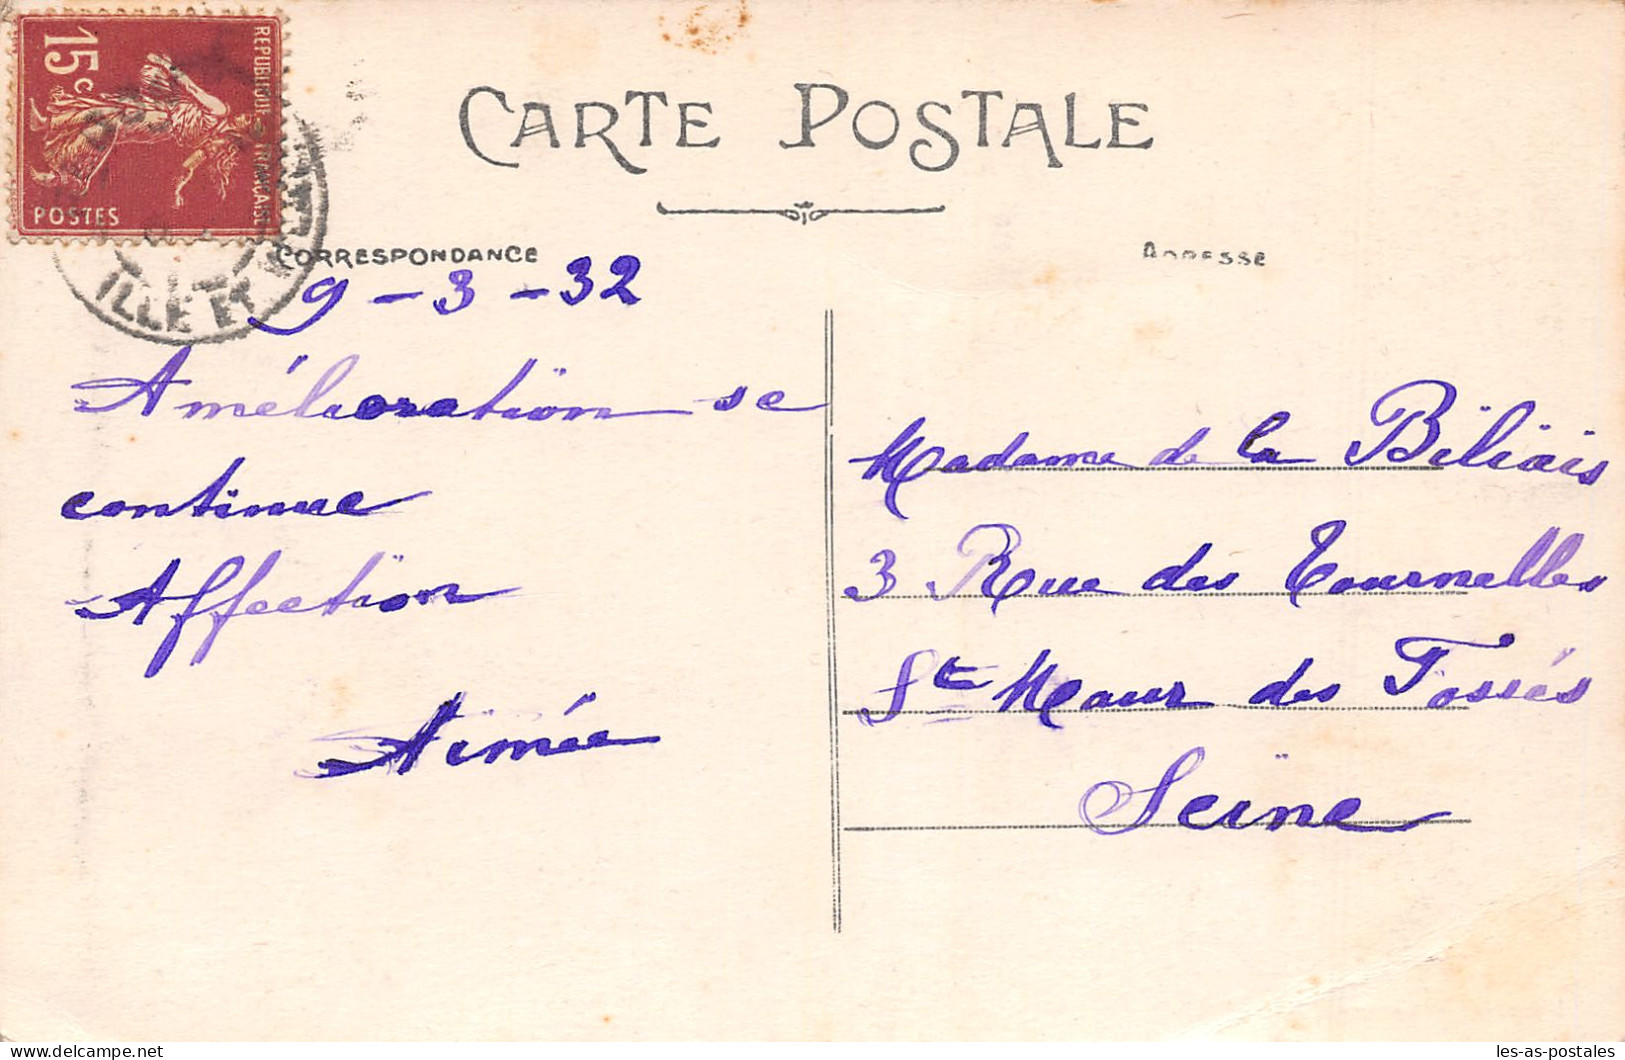 15c
REPUBLIQUE FRANÇAISE
POSTES
ILLE ET VILAINE
CARTE POSTALE
CORRESPONDANCE
9-3-32
Amélioration se
continue
Affection
Aimée
ADRESSE
Madame de la Biliais
3 Rue des Tournelles
St Maur des Fossés
Seine
les-as-postales